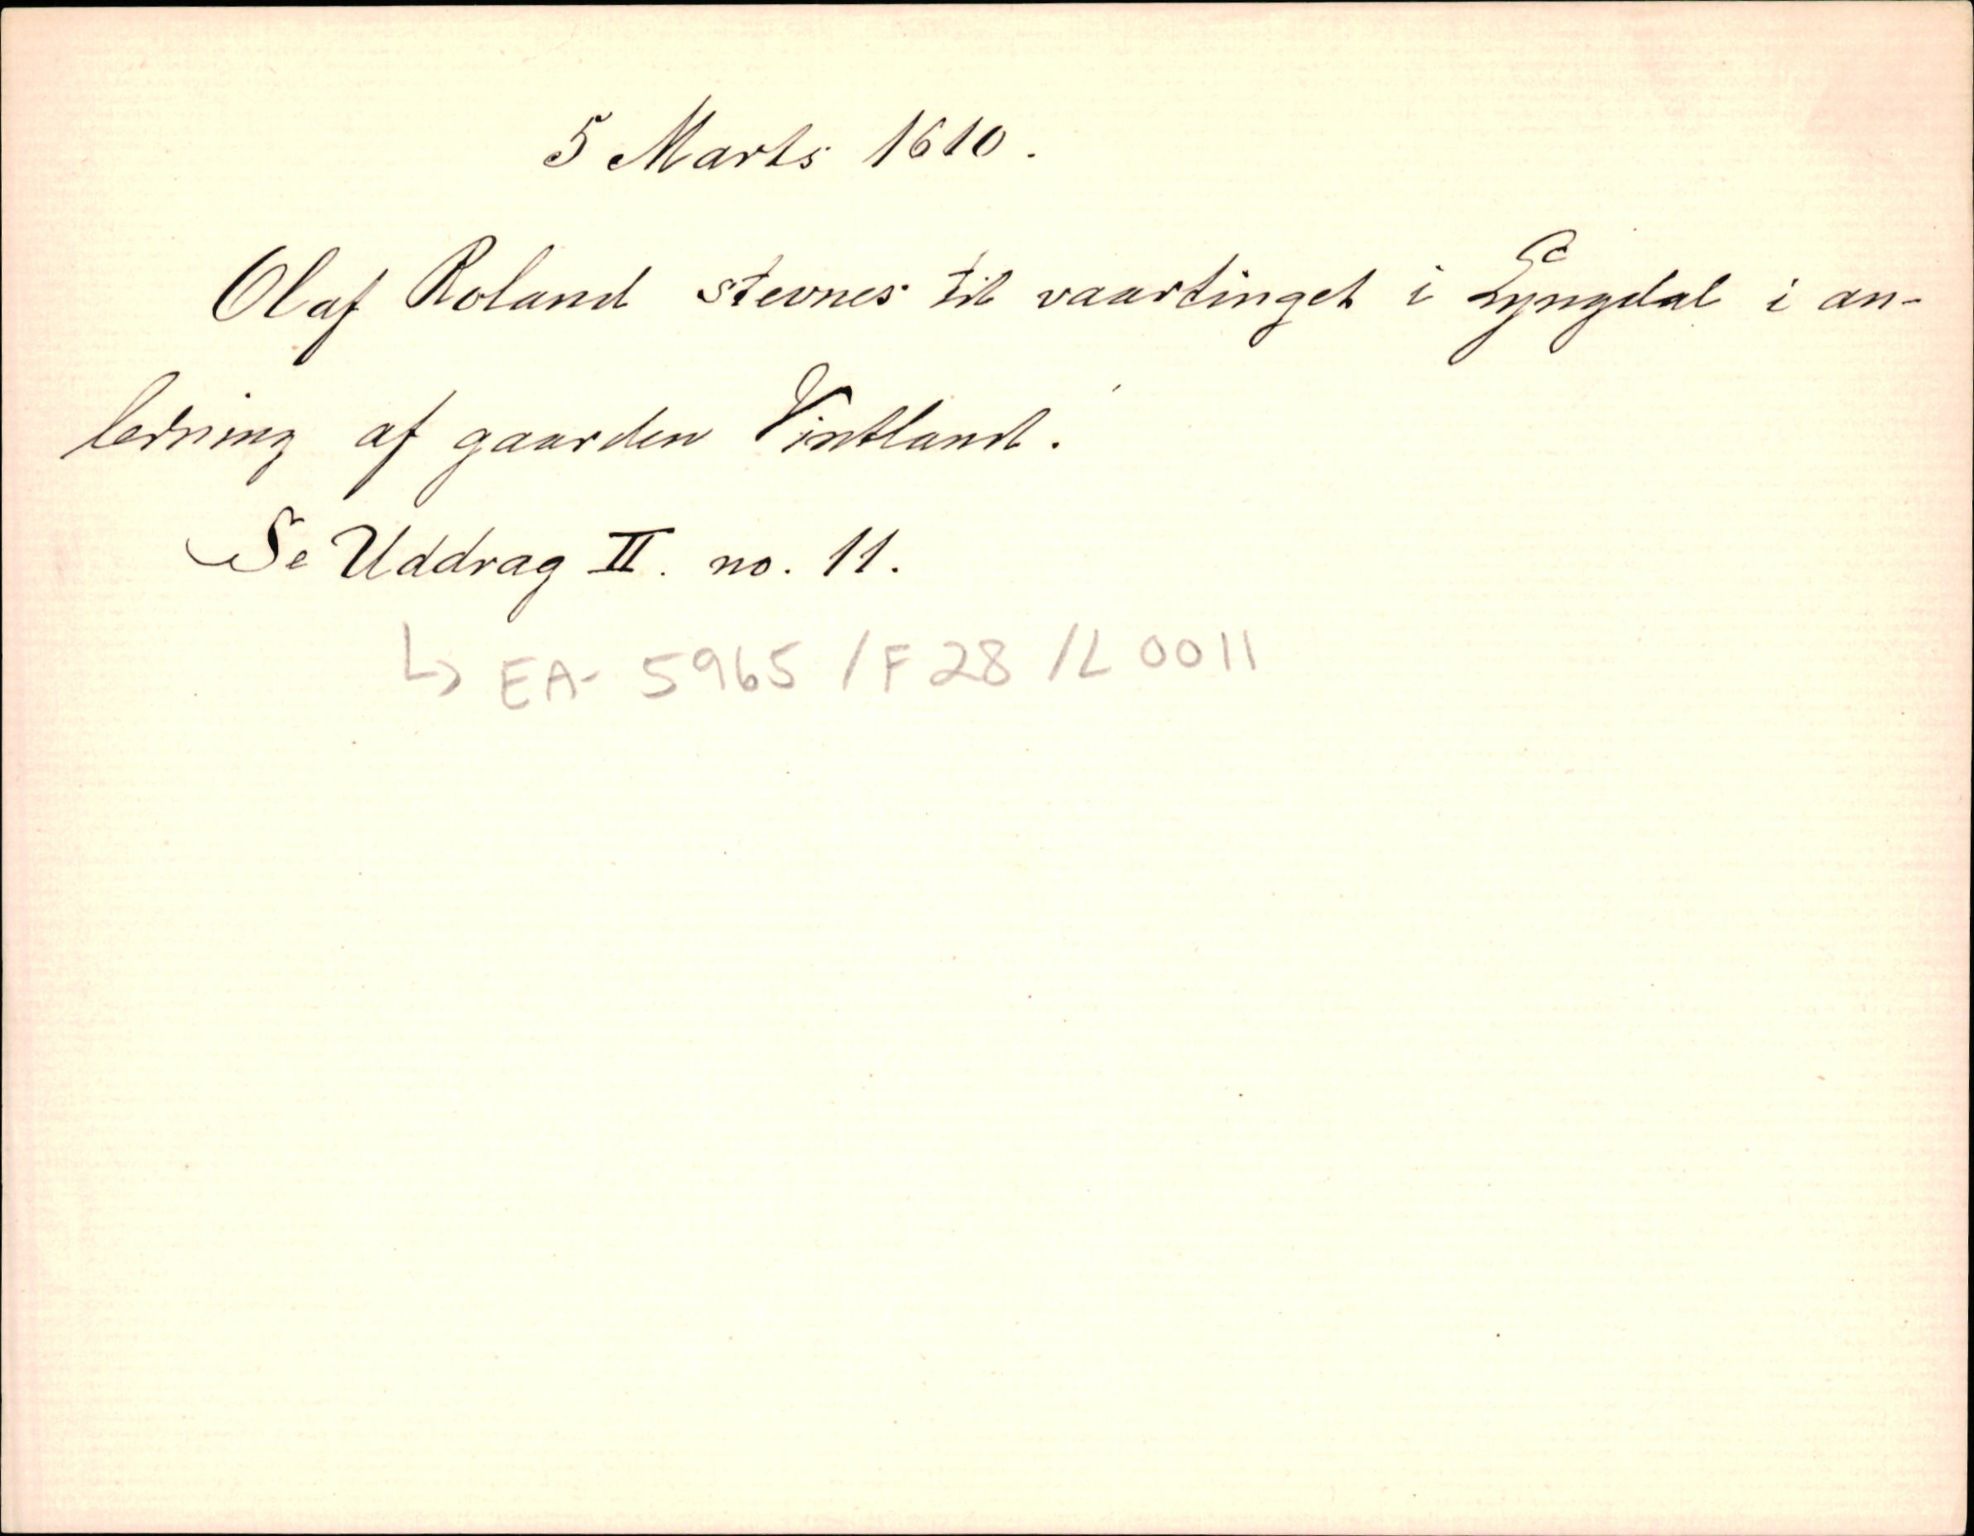 5 Marts 1610.
Olaf Roland stevnes til vaartinget i Lyngdal i an-
ledning af gaarden Vintland.
Se Uddrag II. no. 11.
↳ EA- 5965 /F28 /L 0011